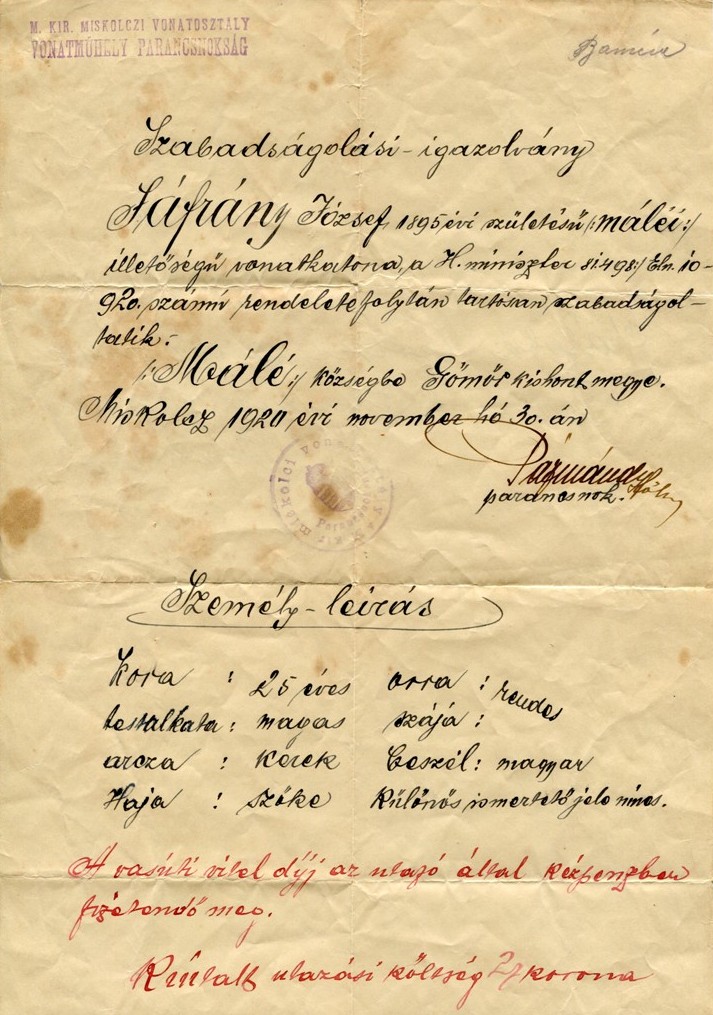 M. KIR. MISKOLCZI VONATOSZTÁLY
VONATMŰHELY PARANCSNOKSÁG
Szabadságolási-igazolvány
Sáfrány József, 1895 évi születésű /:máléi:/
illetőségű vonatkatona, a H. miniszter 81498:/ Eln. 10-
920. számú rendelete folytán tartósan szabadságol-
tatik.-
/:Málé:/ községbe Gömör kishont megye.
Miskolcz 1920 évi november hó 30.án
parancsnok.
Személy-leirás
Kora : 25 éves orra : rendes
testalkata : magas szája :
arcza : kerek beszél : magyar
Haja : szőke Különös ismertető jele nincs.
A vasúti vitel díjj az utazó által készpenzben
fizetendő meg.
Kiutalt utazási költség 27 korona